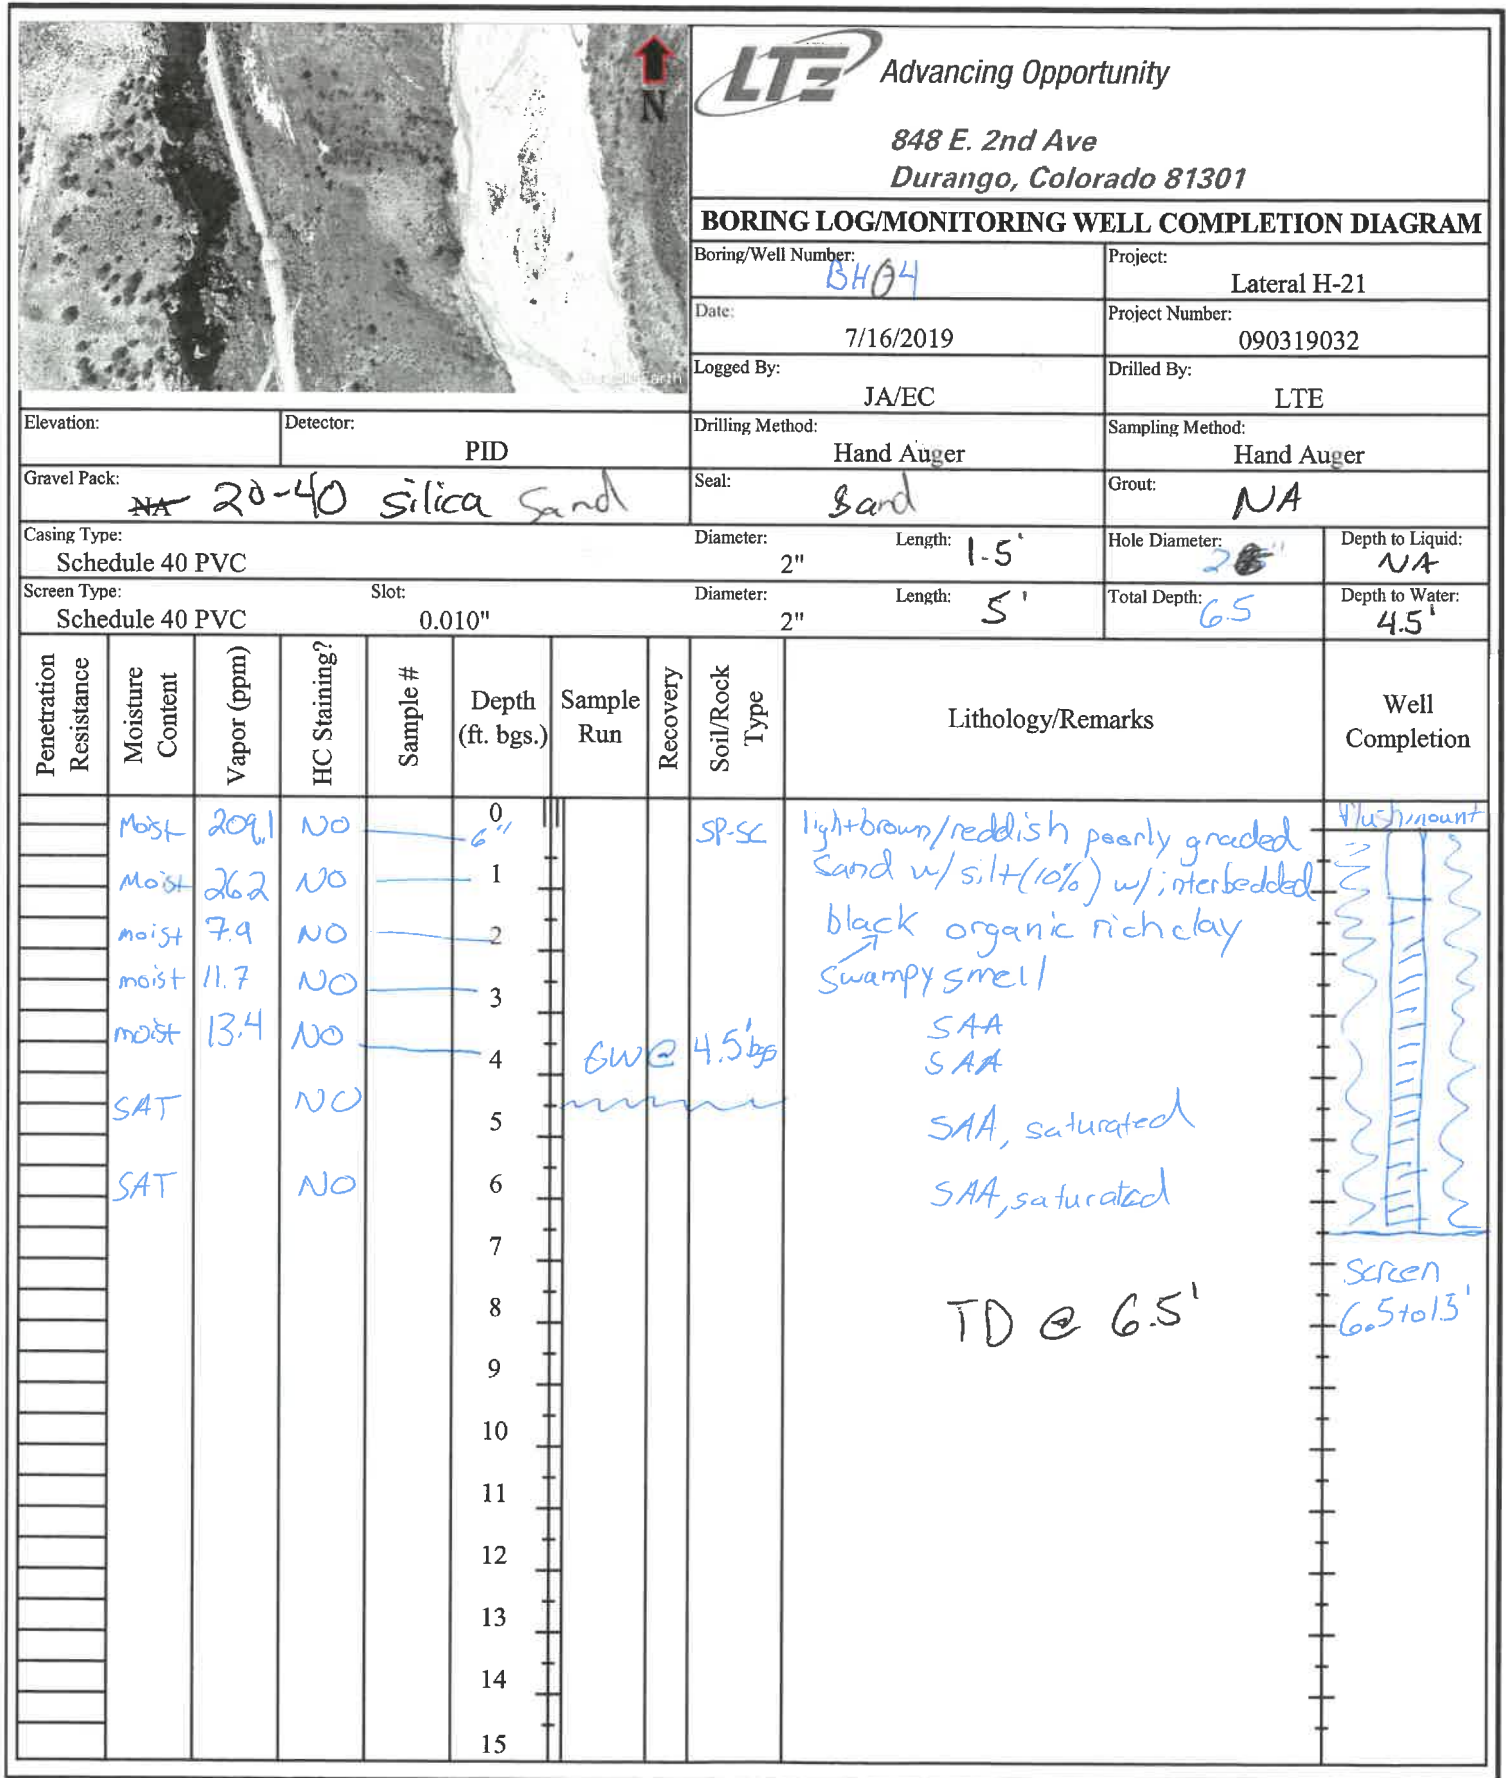 N
LTE Advancing Opportunity
848 E. 2nd Ave
Durango, Colorado 81301
BORING LOG/MONITORING WELL COMPLETION DIAGRAM
Boring/Well Number: BH04
Project: Lateral H-21
Date: 7/16/2019
Project Number: 090319032
Logged By: JA/EC
Drilled By: LTE
Elevation:
Detector: PID
Drilling Method: Hand Auger
Sampling Method: Hand Auger
Gravel Pack: NA 20-40 silica Sand
Seal: Sand
Grout: NA
Casing Type: Schedule 40 PVC
Diameter: 2"
Length: 1.5'
Hole Diameter: 2
Depth to Liquid: NA
Screen Type: Schedule 40 PVC
Slot: 0.010"
Diameter: 2"
Length: 5'
Total Depth: 6.5
Depth to Water: 4.5'
Penetration Resistance
Moisture Content
Vapor (ppm)
HC Staining?
Sample #
Depth (ft. bgs.)
Sample Run
Recovery
Soil/Rock Type
Lithology/Remarks
Well Completion
0 flushmount
Moist 209.1 NO 6" SP-SC light brown/reddish poorly graded
Moist 26.2 NO 1 Sand w/ silt (10%) w/ interbedded
moist 7.9 NO 2 black organic rich clay
moist 11.7 NO 3 swampy smell
moist 13.4 NO SAA
4 GW @ 4.5' bgs SAA
SAT NO 5 SAA, saturated
SAT NO 6 SAA, saturated
7
Screen
8 TD @ 6.5' 6.5 to 1.5'
9
10
11
12
13
14
15